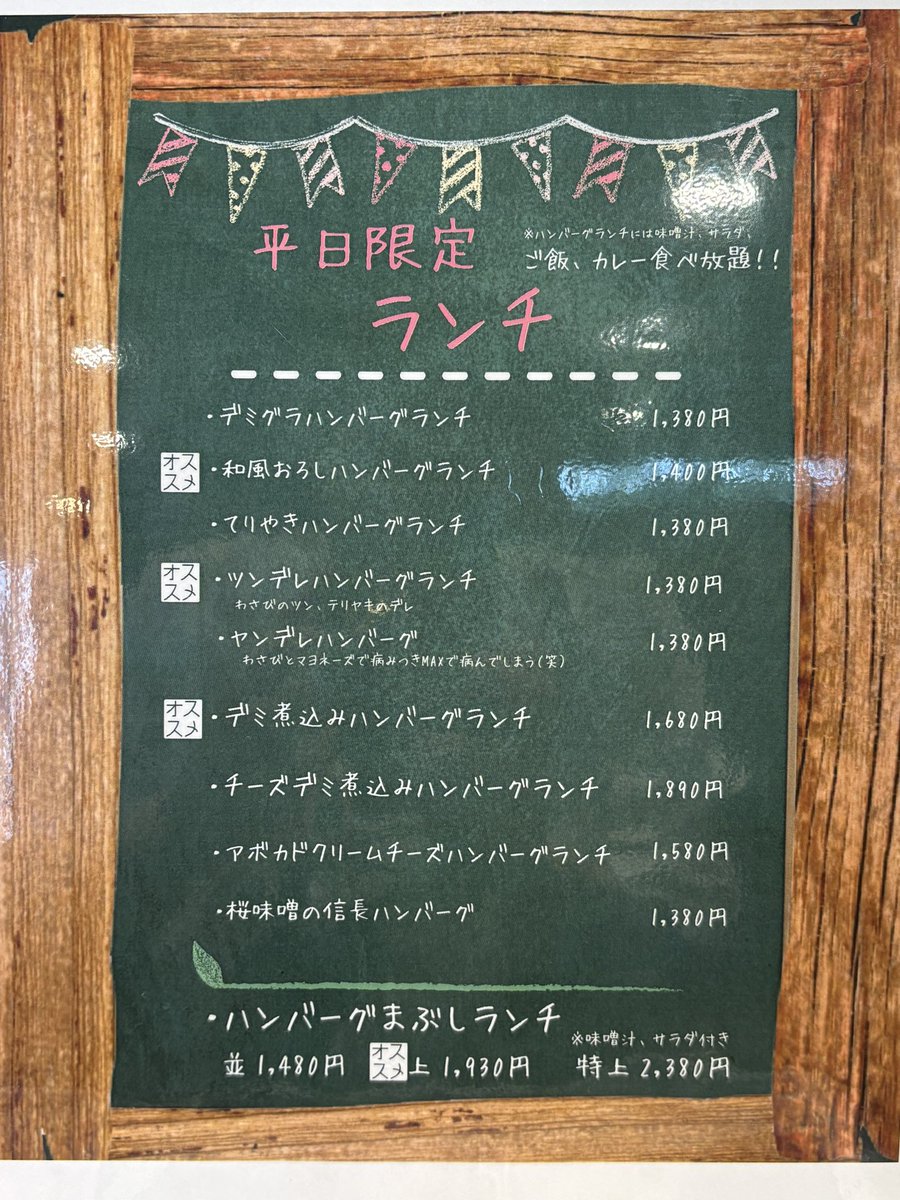 平日限定
ランチ
※ハンバーグランチには味噌汁、サラダ、
ご飯、カレー食べ放題!!
・デミグラハンバーグランチ 1,380円
オススメ ・和風おろしハンバーグランチ 1,400円
・てりやきハンバーグランチ 1,380円
オススメ ・ツンデレハンバーグランチ 1,380円
わさびのツン、テリヤキのデレ
・ヤンデレハンバーグ 1,380円
わさびとマヨネーズで病みつきMAXで病んでしまう(笑)
オススメ ・デミ煮込みハンバーグランチ 1,680円
・チーズデミ煮込みハンバーグランチ 1,890円
・アボカドクリームチーズハンバーグランチ 1,580円
・桜味噌の信長ハンバーグ 1,380円
・ハンバーグまぶしランチ
※味噌汁、サラダ付き
並 1,480円 オススメ 上 1,930円 特上 2,380円